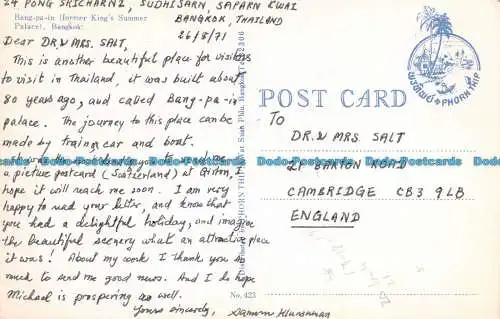 24 PONG SRICHARN2, SUDHISARN, SAPARN KWAI
BANGKOK, THAILAND
26/8/71
Bang-pa-in (former King's Summer
Palace), Bangkok.
Dear DR.& MRS. SALT,
This is another beautiful place for visitors
to visit in Thailand, it was built about
80 years ago, and called Bang-pa-in
palace. The journey to this place can be
made by train, car and boat.
you
a picture postcard (Switzerland) at Girton, I
hope it will reach me soon. I am very
happy to read your letter, and know that
you had a delightful holiday, and imagine
the beautiful scenery what an attractive place
it was! About my work I thank you so
much to send me good news. And I do hope
Michael is prospering as well.
Yours sincerely,
PHORNTHIP
Bangkok
No. 423
POST CARD
PHORNTHIP
TO
DR.& MRS. SALT
21 BARTON ROAD
CAMBRIDGE CB3 9LB
ENGLAND
Dodo-Postcards Dodo-Postcards Dodo-Postcards Dodo-Postcards